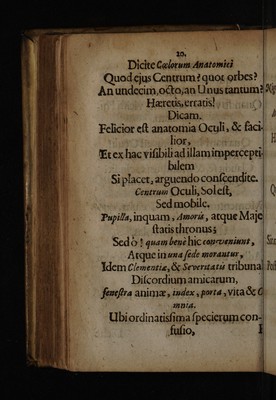 20.
Dicite Cœlorum Anatomici
Quod ejus Centrum? quot orbes?
An undecim, octo, an Unus tantum?
Hæretis, erratis!
Dicam.
Felicior est anatomia Oculi, & faci-
lior,
Et ex hac visibili ad illam impercepti-
bilem
Si placet, arguendo conscendite.
Centrum Oculi, Sol est,
Sed mobile.
Pupilla, inquam, Amoris, atque Maje
statis thronus;
Sed ô! quam bene hic conveniunt,
Atque in una sede morantur,
Idem Clementiæ, & Severitatis tribunal
Discordium amicarum,
fenestra animæ, index, porta, vita &
omnia.
Ubi ordinatissima specierum con-
fusio,